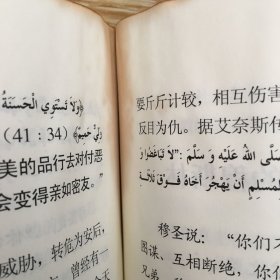 ﴿وَلَا تَسْتَوِي الْحَسَنَةُ
وَلِيٌّ حَمِيمٌ﴾ (41：34)
美的品行去对付恶
会变得亲如密友。”
威胁，转危为安后，
曾经有一
要斤斤计较，相互伤害
反目为仇。据艾奈斯传
صَلَّى اللهُ عَلَيْهِ وَ سَلَّمَ :"لَا تَبَاغَضُوا
لِمُسْلِمٍ أَنْ يَهْجُرَ أَخَاهُ فَوْقَ ثَلَاثَةِ
穆圣说：“你们
图谋、互相断绝，你
兄弟